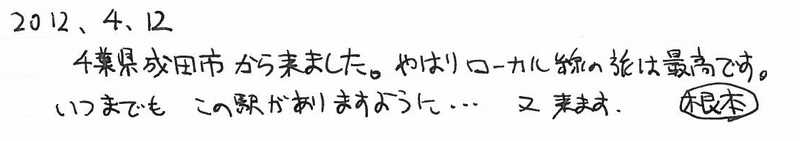 2012、4、12
千葉県成田市から来ました。やはりローカル線の旅は最高です。
いつまでも この駅がありますように… 又来ます. 根本